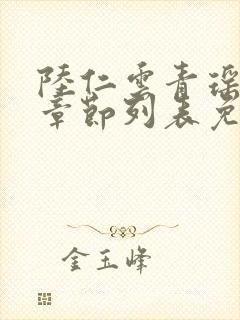 陸仁雲青瑶
章節列表免
金玉峰